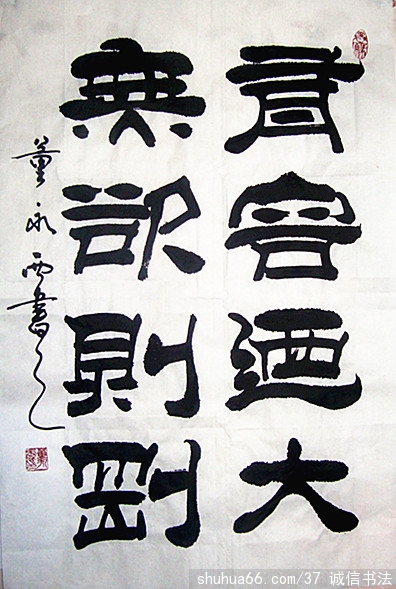 有容迺大
無欲則剛
董永西書之
shuhua66.com/37 诚信书法